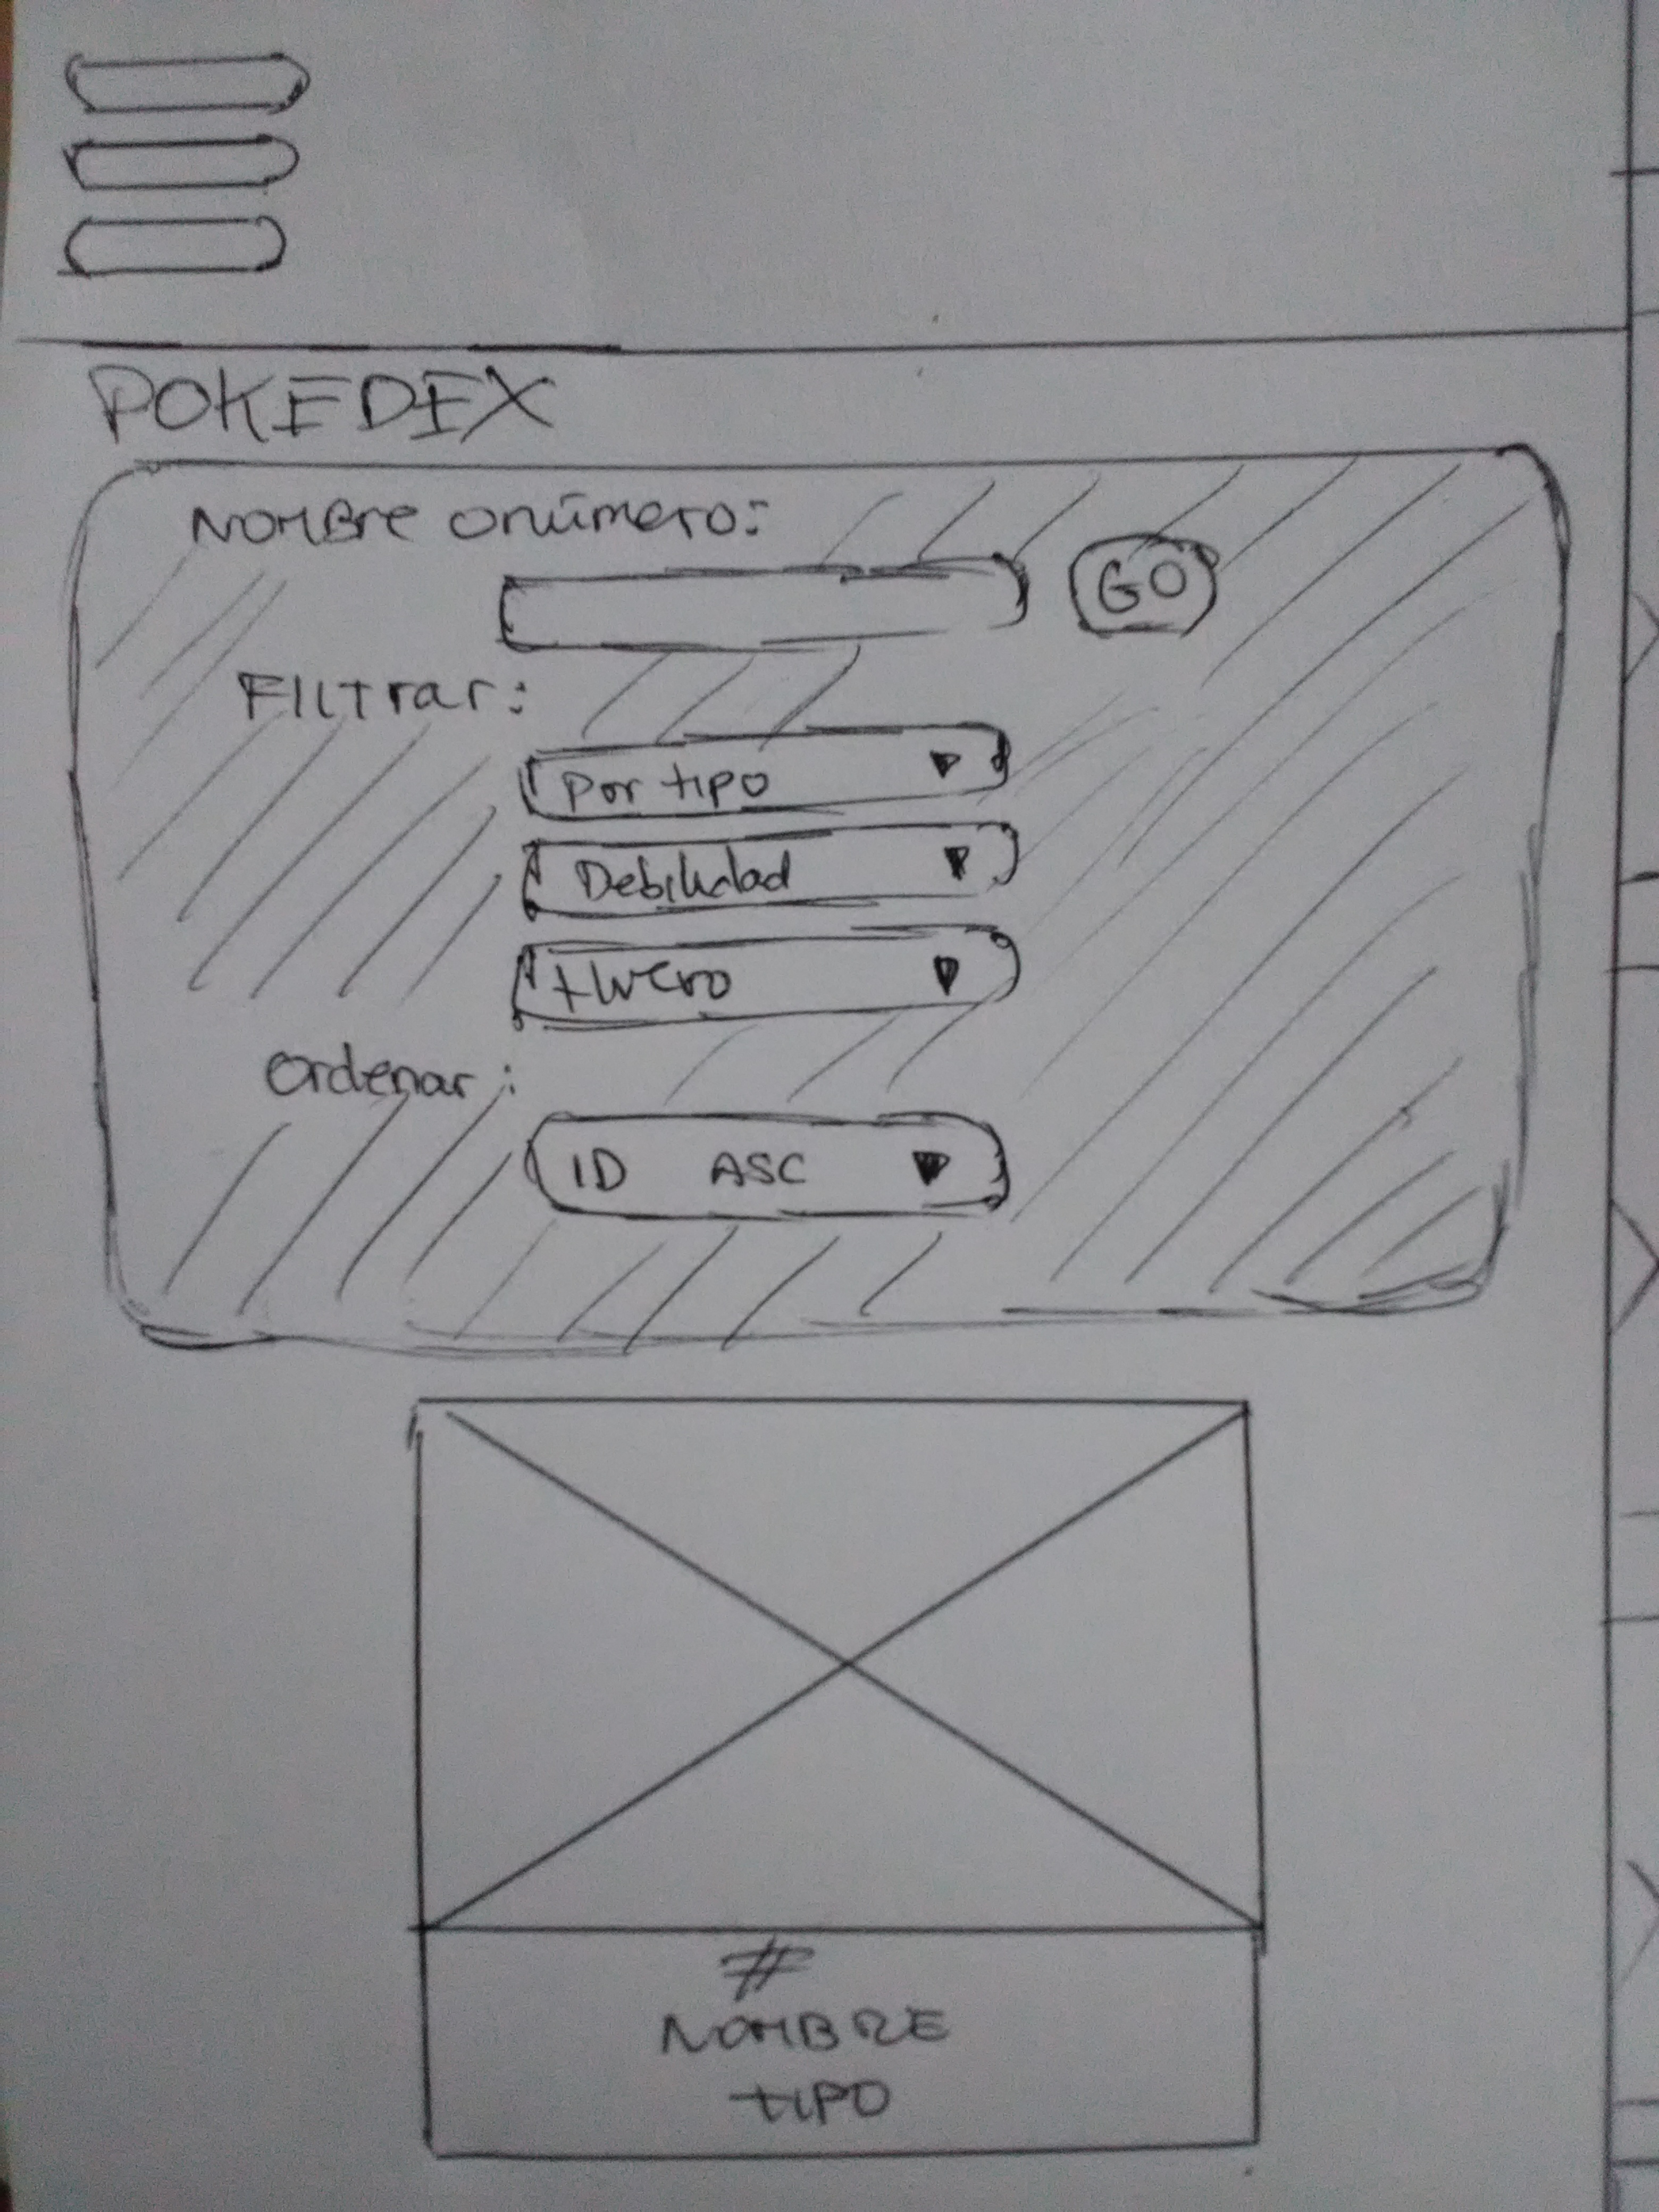 POKEDEX
Nombre o número:
GO
Filtrar:
Por tipo
Debilidad
Ordenar:
ID ASC
#
NOMBRE
TIPO